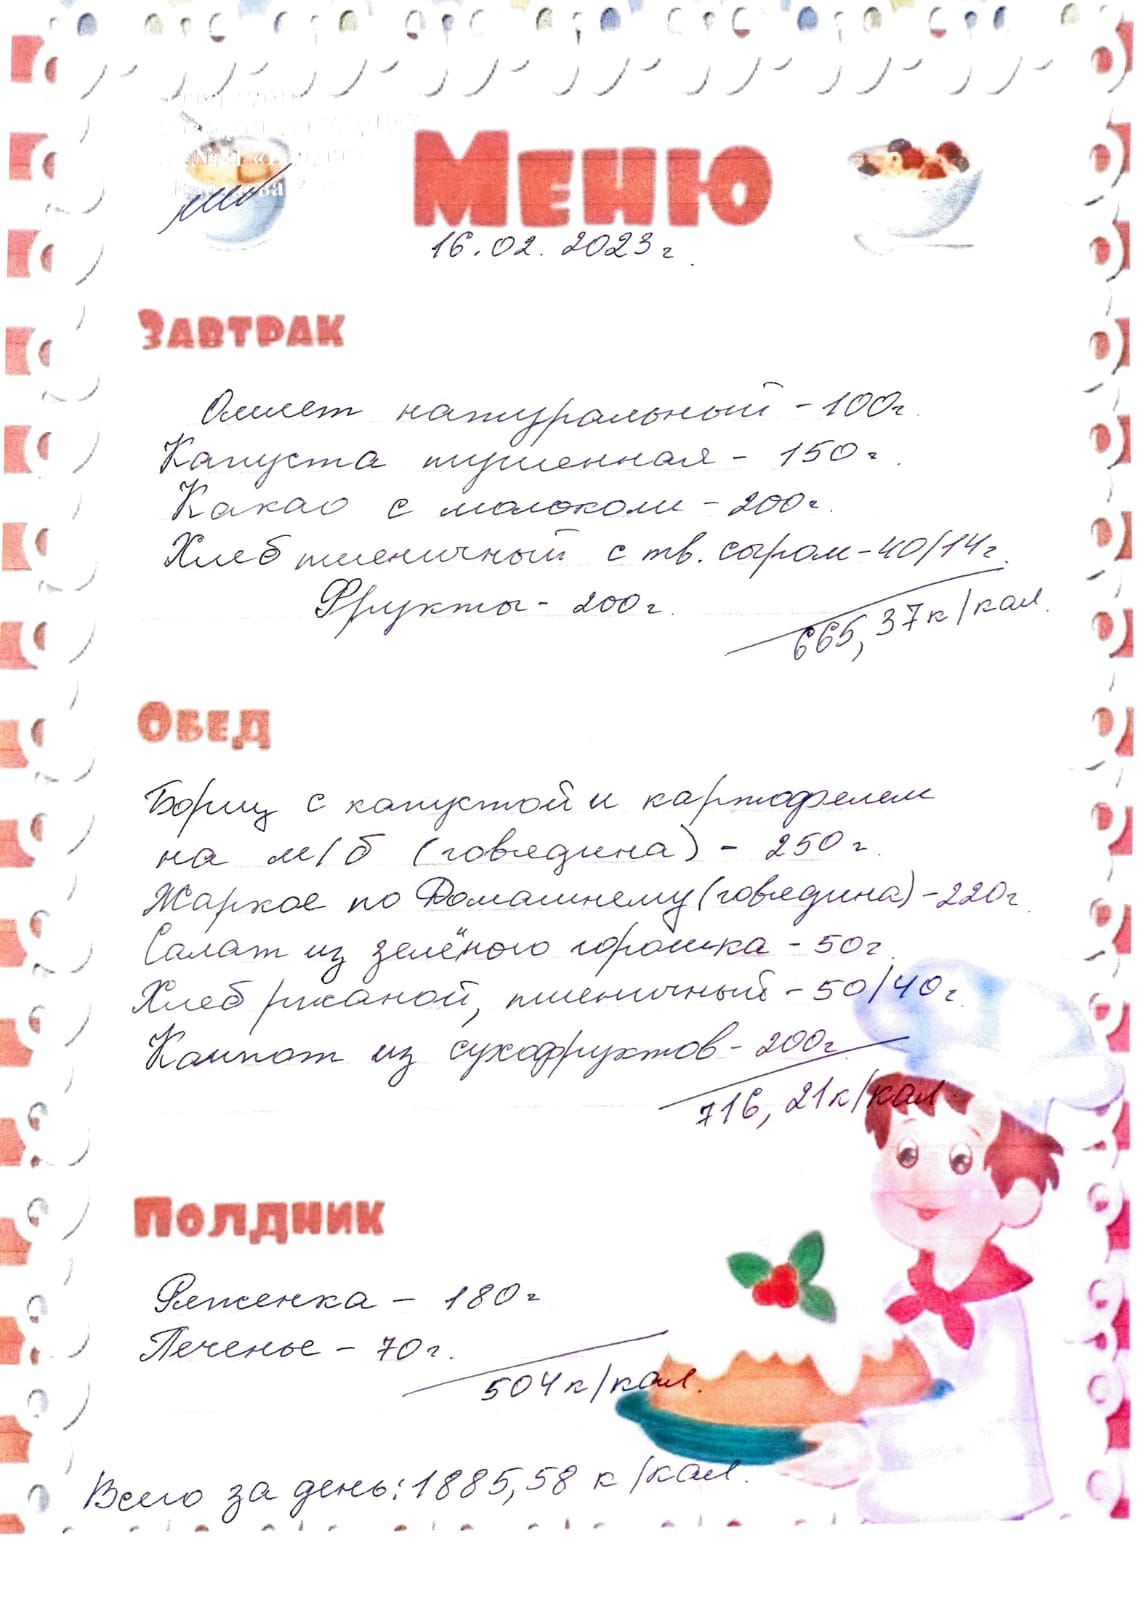 Меню
16.02.2023г.
Завтрак
Омлет натуральный - 100г.
Капуста тушенная - 150г.
Какао с молоком - 200г.
Хлеб пшеничный с тв. сыром - 40/14г.
Фрукты - 200г.
665,37к/кал.
Обед
Борщ с капустой и картофелем
на м/б (говядина) - 250г.
Жаркое по Домашнему (говядина) - 220г.
Салат из зелёного горошка - 50г.
Хлеб ржаной, пшеничный - 50/40г.
Компот из сухофруктов - 200г.
716,21к/кал
Полдник
Ряженка - 180г
Печенье - 70г.
504к/кал.
Всего за день: 1885,58 к/кал.